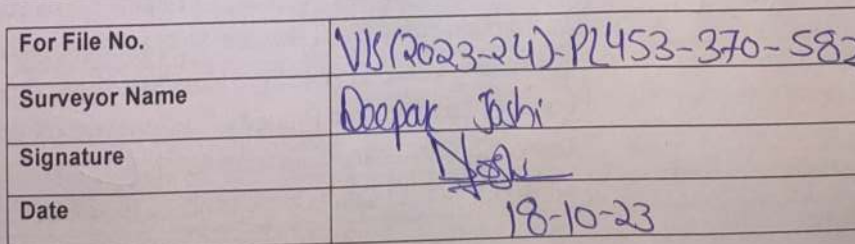 For File No. VIS(2023-24)-PL453-370-582
Surveyor Name Deepak Joshi
Signature Joshi
Date 18-10-23